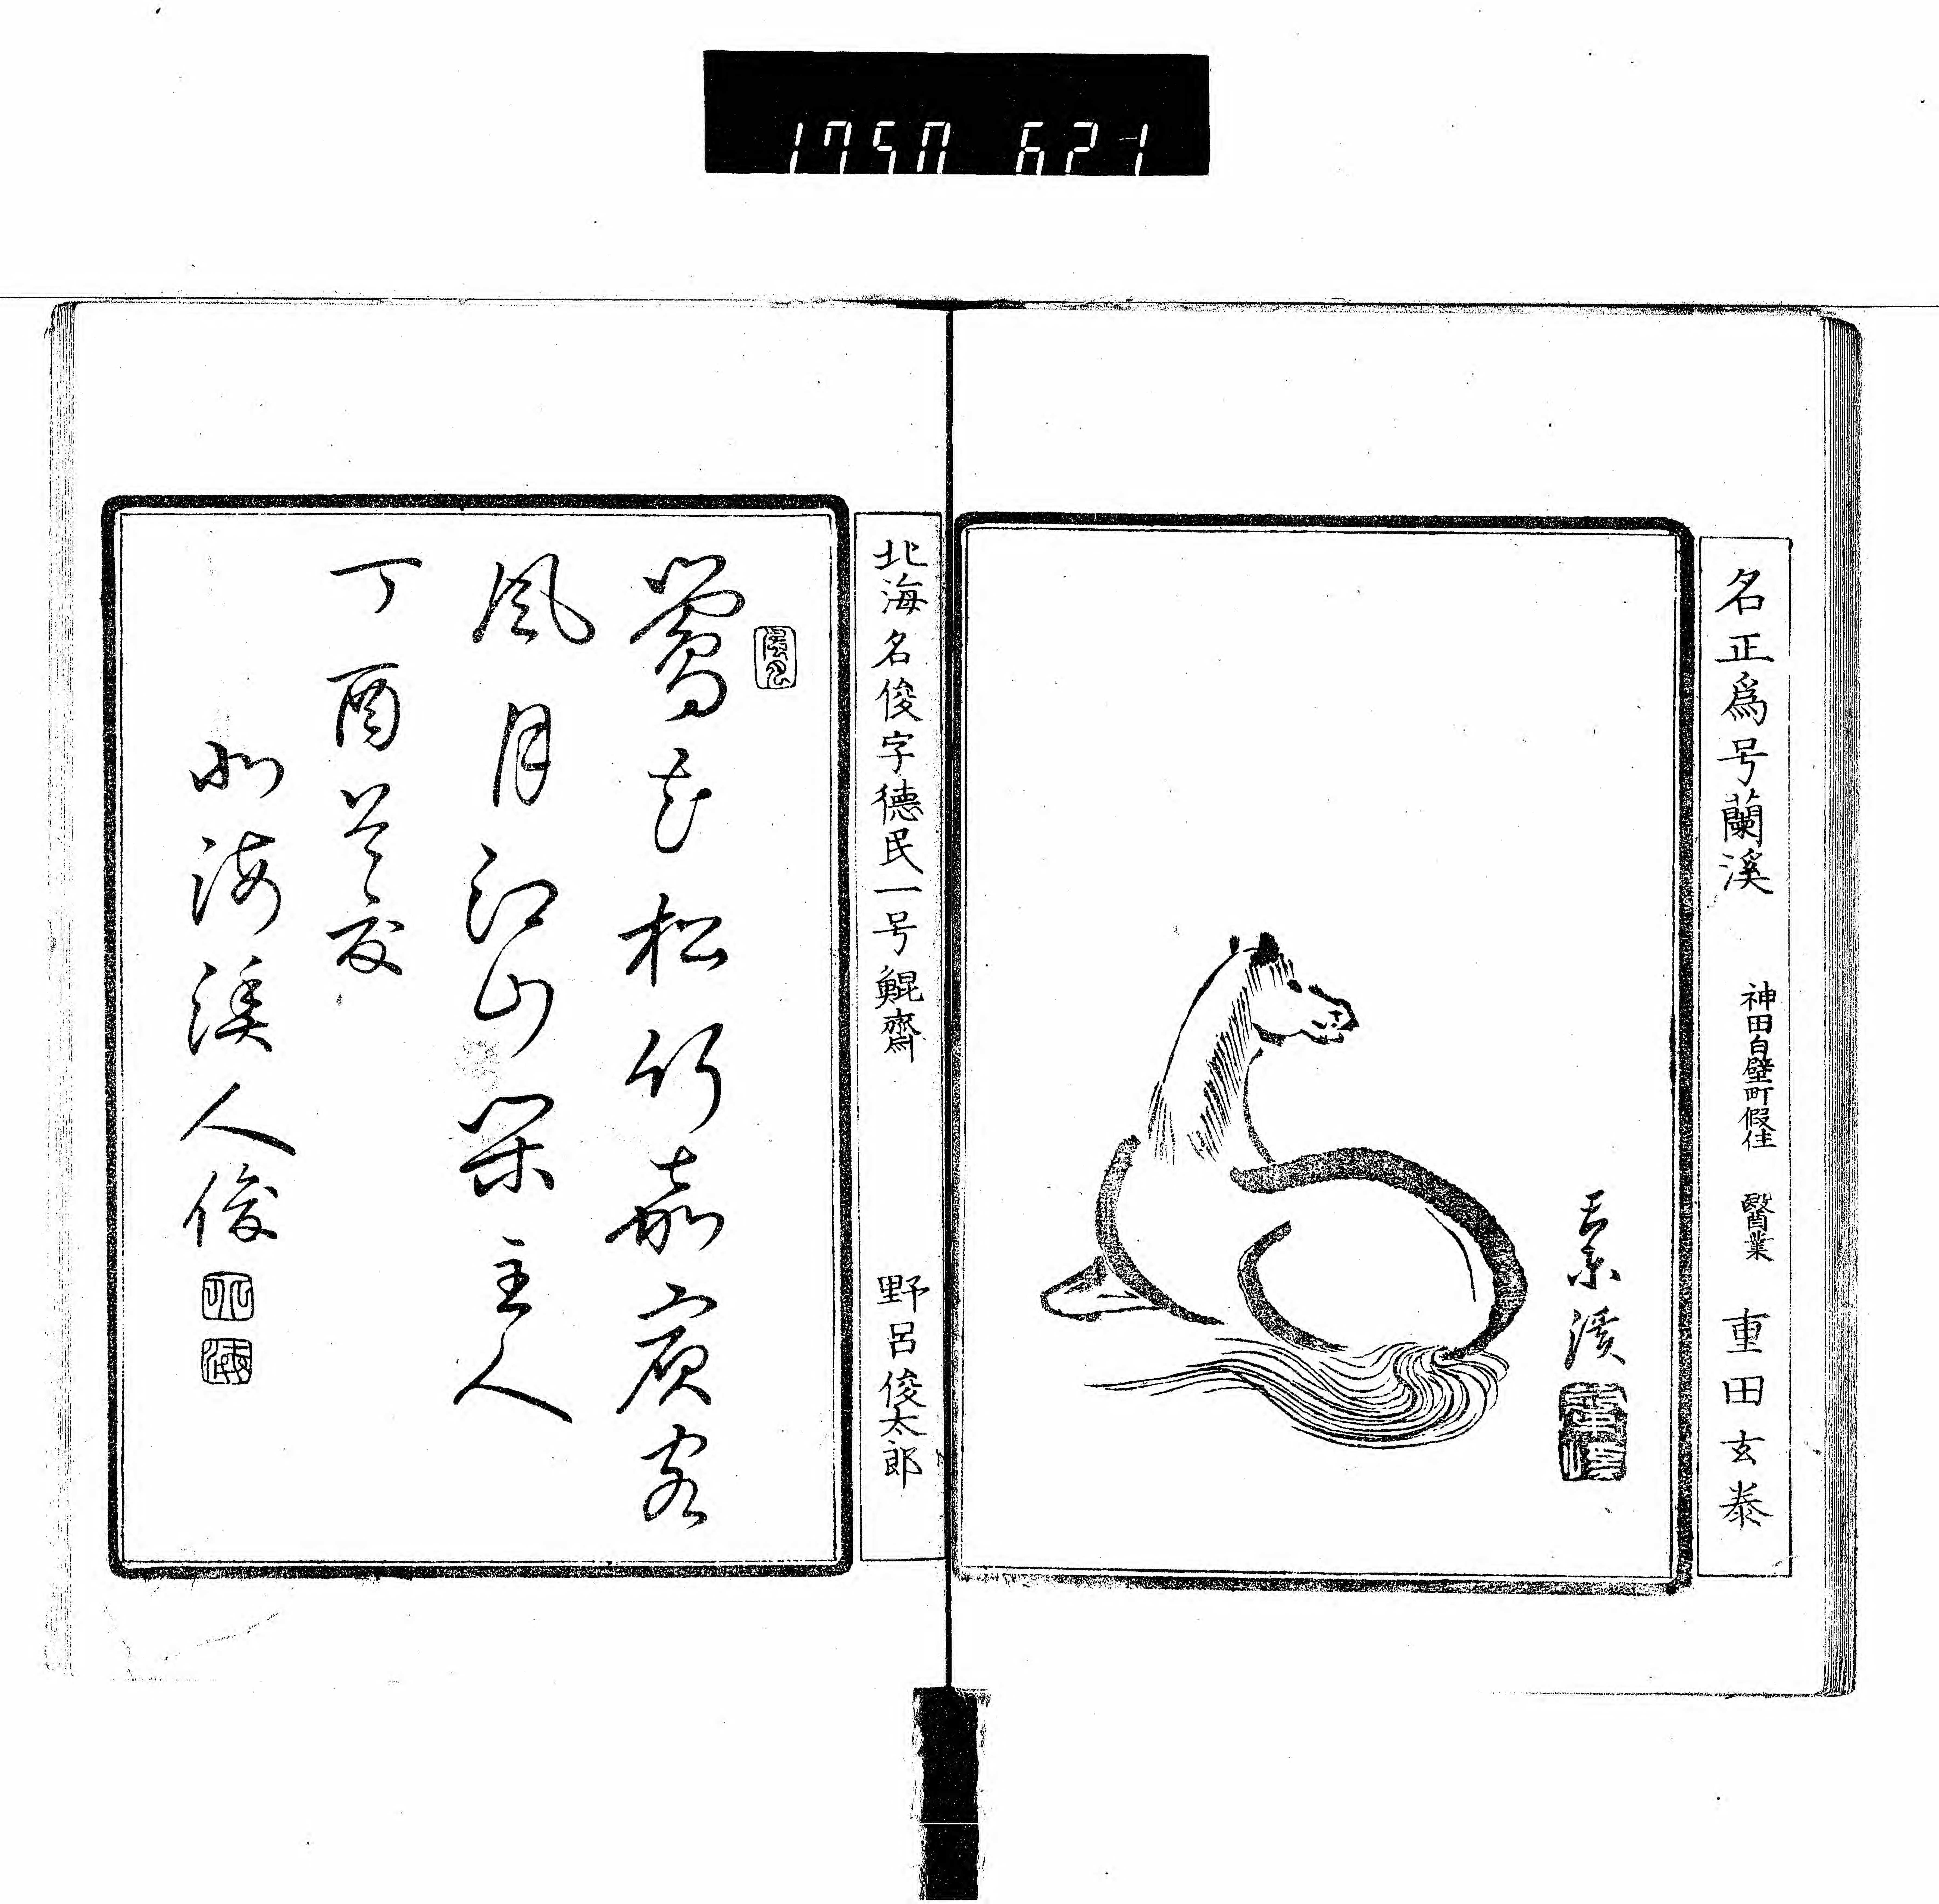 1750 621
名正爲号蘭溪 神田白壁町假住 醫業 重田玄泰
溪
北海名俊字德民一号鯤齋 野呂俊太郎
鶯花松竹嘉賓客
風月江山閑主人
丁酉首夏
北海漁人俊
北
海